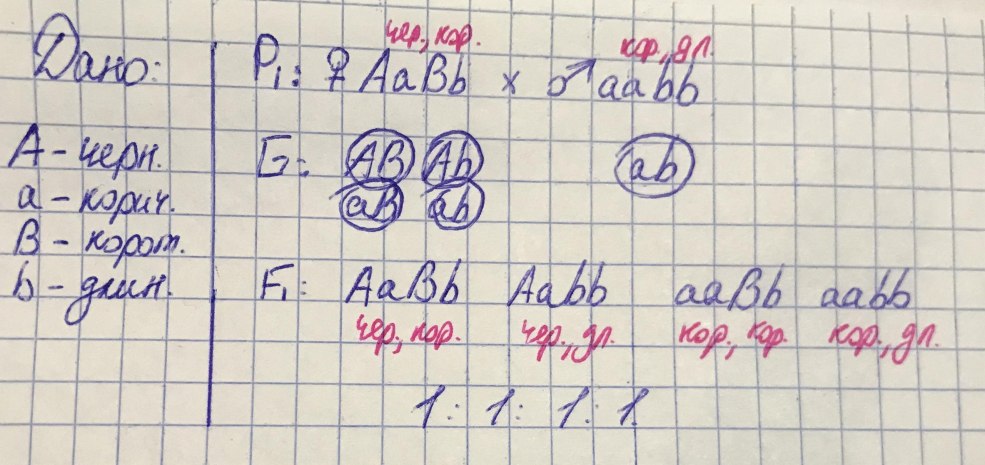 чер, кор. кор, дл.
Дано: P₁: ♀ AaBb × ♂ aabb
A - черн. G: AB Ab ab
a - корич. aB ab
B - корот.
b - длин. F₁: AaBb Aabb aaBb aabb
чер, кор. чер, дл. кор, кор. кор, дл.
1: 1: 1: 1.